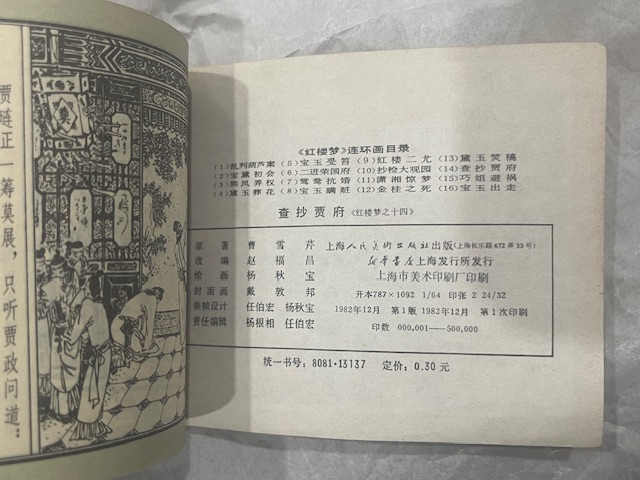 贾琏正一筹莫展，只听贾政问道：
《红楼梦》连环画目录
(1)乱判葫芦案 (5)宝玉受笞 (9)红楼二尤 (13)黛玉焚稿
(2)宝黛初会 (6)二进荣国府 (10)抄检大观园 (14)查抄贾府
(3)熙凤弄权 (7)鸳鸯抗婚 (11)潇湘惊梦 (15)巧姐避祸
(4)黛玉葬花 (8)宝玉瞒赃 (12)金桂之死 (16)宝玉出走
查抄贾府 《红楼梦之十四》
原著 曹雪芹 上海人民美术出版社出版(上海长乐路672弄33号)
改编 赵福昌 新华书店上海发行所发行
绘画 杨秋宝 上海市美术印刷厂印刷
封面画 戴敦邦 开本787×1092 1/64 印张 2 24/32
装帧设计 任伯宏 杨秋宝 1982年12月 第1版 1982年12月 第1次印刷
责任编辑 杨根相 任伯宏 印数 000,001—500,000
统一书号：8081·13137 定价：0.30元